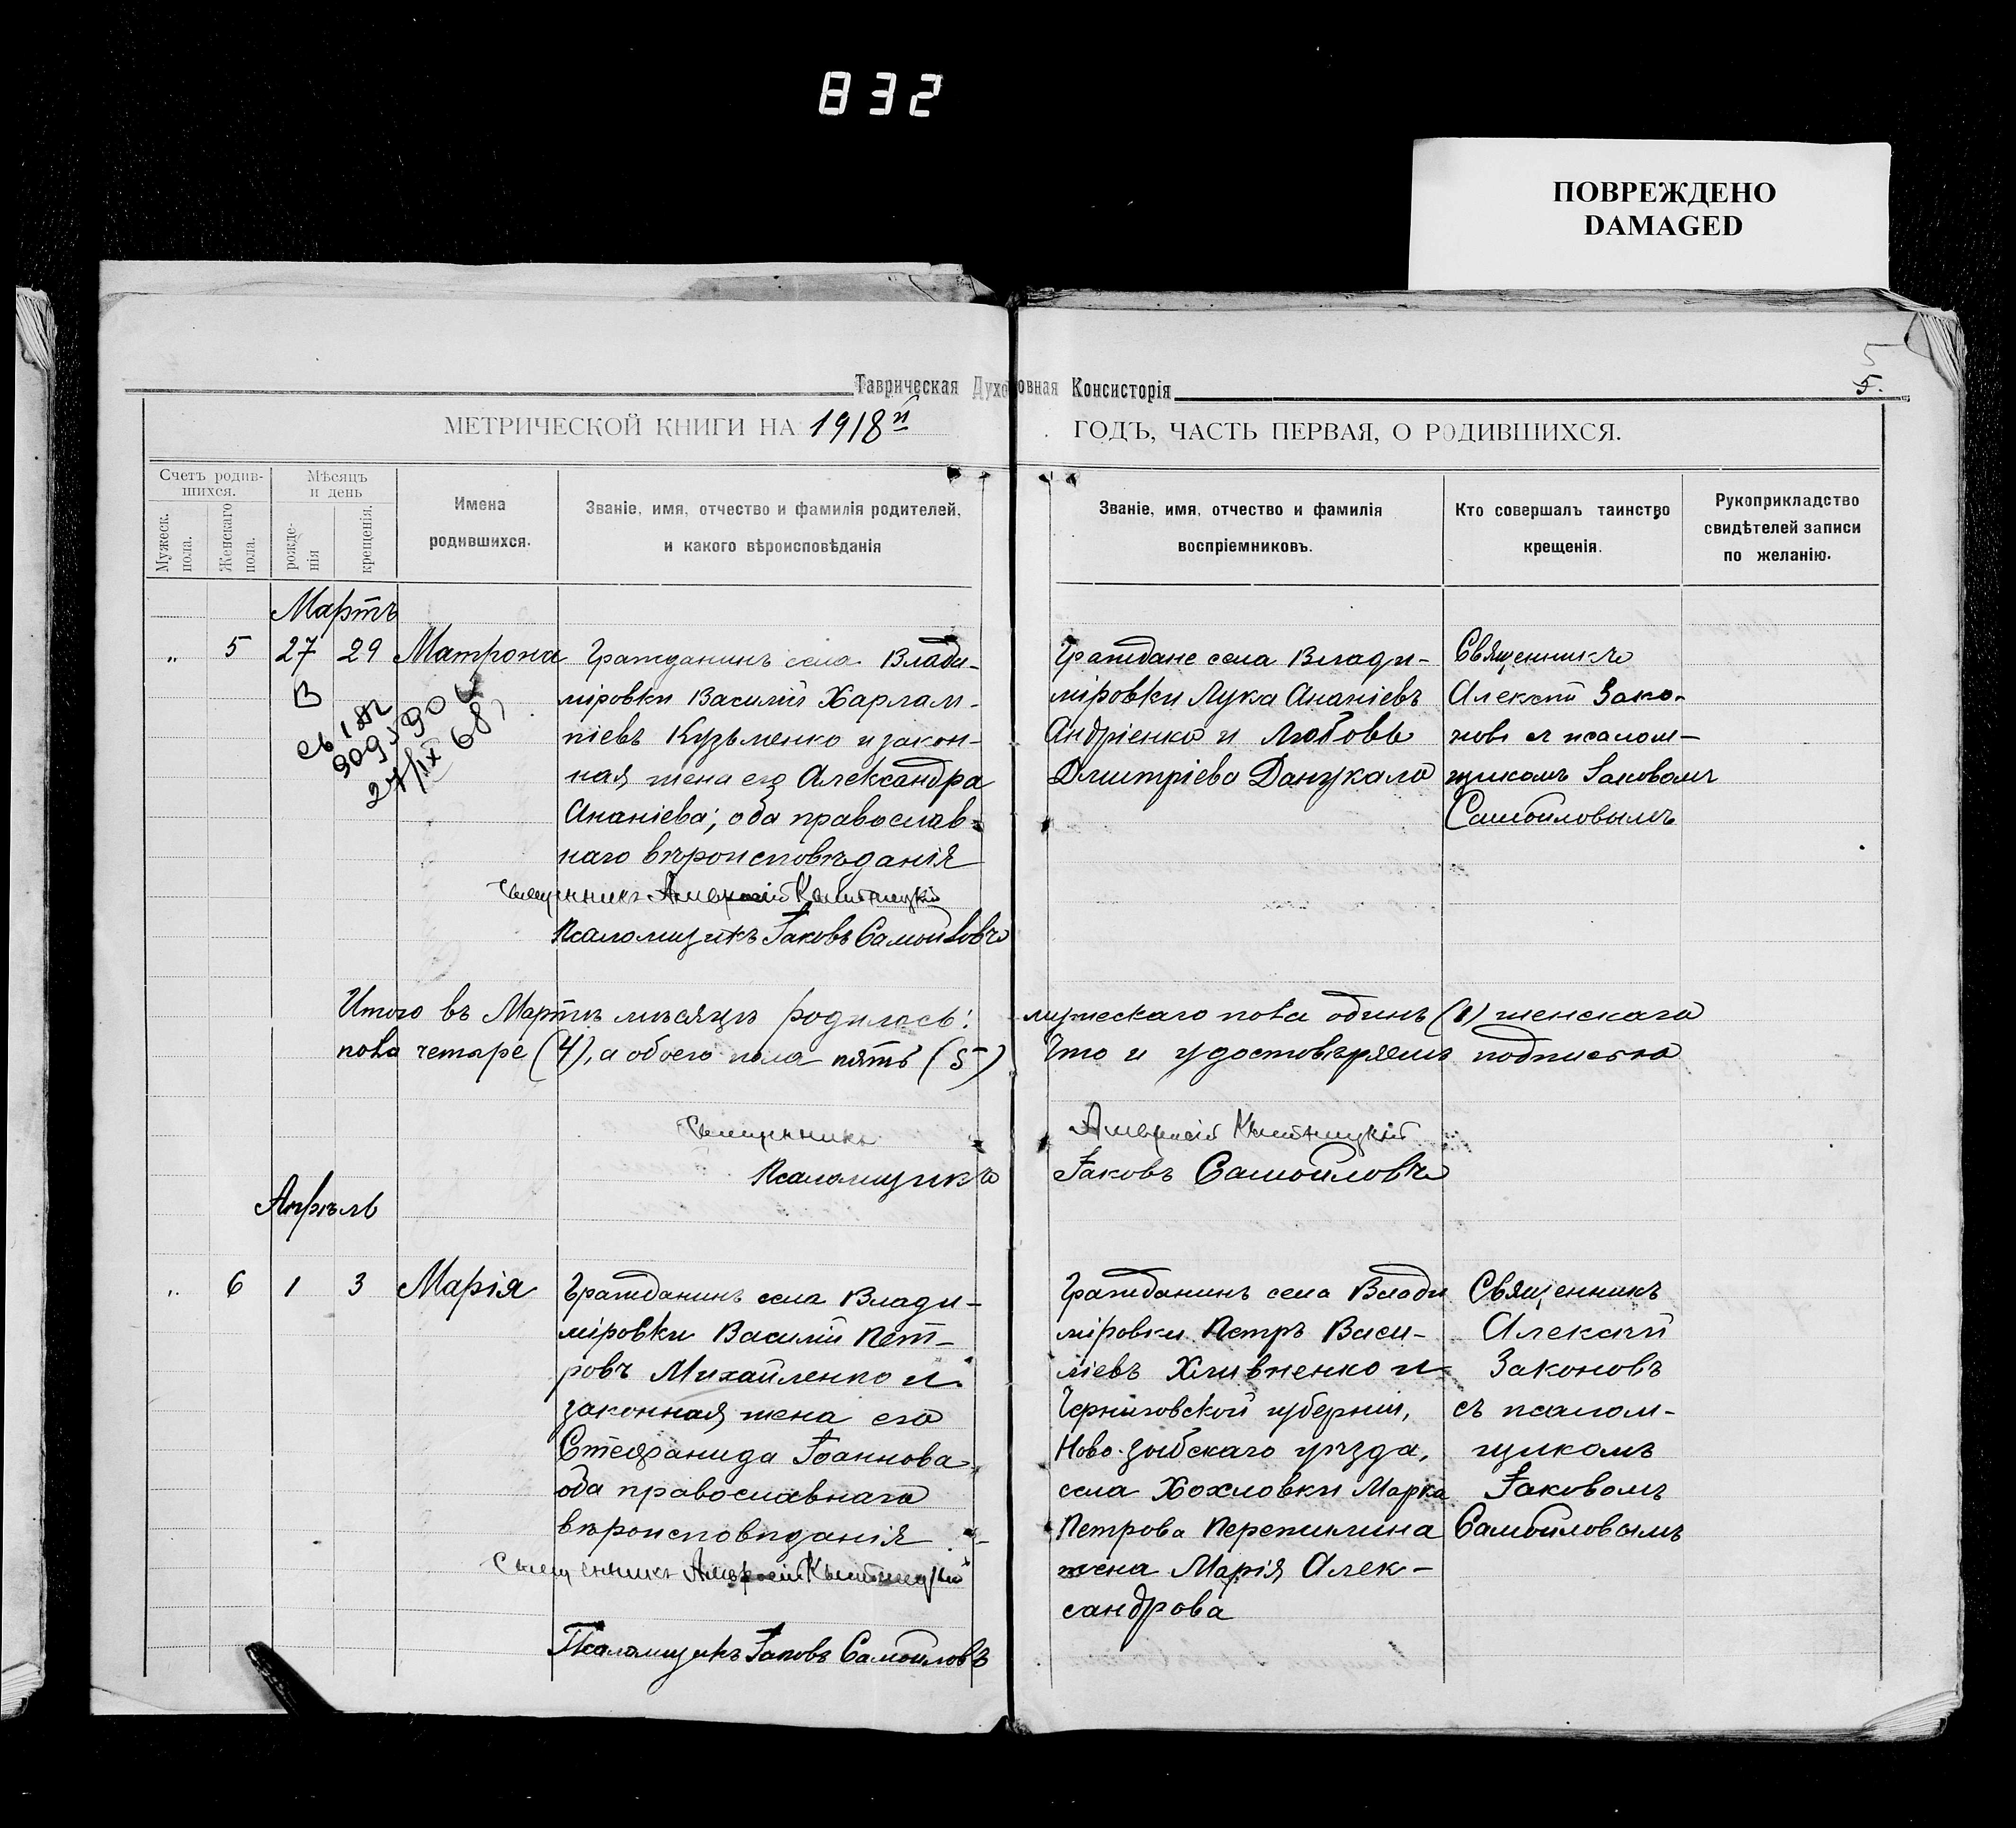 832
ПОВРЕЖДЕНО
DAMAGED
5
5.
Таврическая Духовная Консисторія
МЕТРИЧЕСКОЙ КНИГИ НА 1918й ГОДЪ, ЧАСТЬ ПЕРВАЯ, О РОДИВШИХСЯ.
Счетъ родив-
шихся.
Мужеск.
пола.
Женскаго
пола.
Мѣсяцъ
и день
рожде-
нія
крещенія.
Имена
родившихся.
Званіе, имя, отчество и фамилія родителей,
и какого вѣроисповѣданія
Званіе, имя, отчество и фамилія
воспріемниковъ.
Кто совершалъ таинство
крещенія.
Рукоприкладство
свидѣтелей записи
по желанію.
Мартъ
" 5 27 29 Матрона
В
27/IX 68
Гражданинъ села Влади-
міровки Василій Харлам-
піевъ Кузьменко и закон-
ная жена его Александра
Ананіева; оба православ-
наго вѣроисповѣданія
Священникъ
Псаломщикъ Іаковъ Самойловъ
Граждане села Влади-
міровки Лука Ананіевъ
Андріенко и Любовь
Дмитріева
Священникъ
Алексій Зако-
новъ с псалом-
щикомъ Іаковомъ
Самойловымъ
Итого въ Мартѣ мѣсяцѣ родилось: мужескаго пола одинъ (1) женскаго
пола четыре (4), а обоего пола пять (5) Что и удостовѣряемъ подписью
Священникъ
Псаломщикъ Іаковъ Самойловъ
Апрѣль
" 6 1 3 Марія
Гражданинъ села Влади-
міровки Василій Пет-
ровъ Михайленко и
законная жена его
Стефанида Іоаннова
оба православнаго
вѣроисповѣданія
Священникъ
Псаломщикъ Іаковъ Самойловъ
Гражданинъ села Влади
міровки Петръ Васи-
ліевъ Хливненко и
Черниговской губерніи,
Ново-зыбскаго уѣзда,
села Хохловки Марка
Петрова Перепилина
жена Марія Алек-
сандрова
Священникъ
Алексій
Законовъ
съ псалом-
щикомъ
Іаковомъ
Самойловымъ